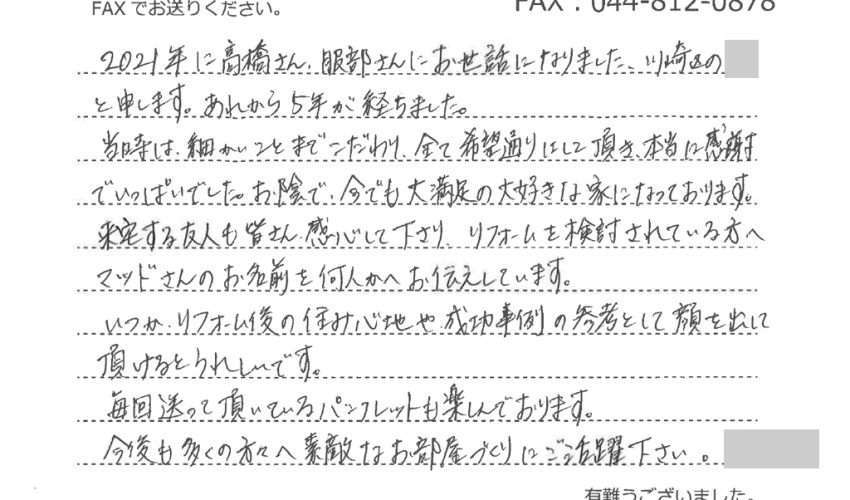 FAXでお送りください。
FAX：044-812-0878
2021年に高橋さん、服部さんにお世話になりました、川崎区の
と申します。あれから5年が経ちました。
当時は、細かいことまでこだわり、全て希望通りにして頂き、本当に感謝
でいっぱいでした。お陰で、今でも大満足の大好きな家になっております。
来宅する友人も皆さん感心して下さり、リフォームを検討されている方へ
マッドさんのお名前を何人かへお伝えしています。
いつか、リフォーム後の住み心地や成功事例の参考として顔を出して
頂けるとうれしいです。
毎回送って頂いているパンフレットも楽しんでおります。
今後も多くの方々へ素敵なお部屋づくりにご活躍下さい。
有難うございました。